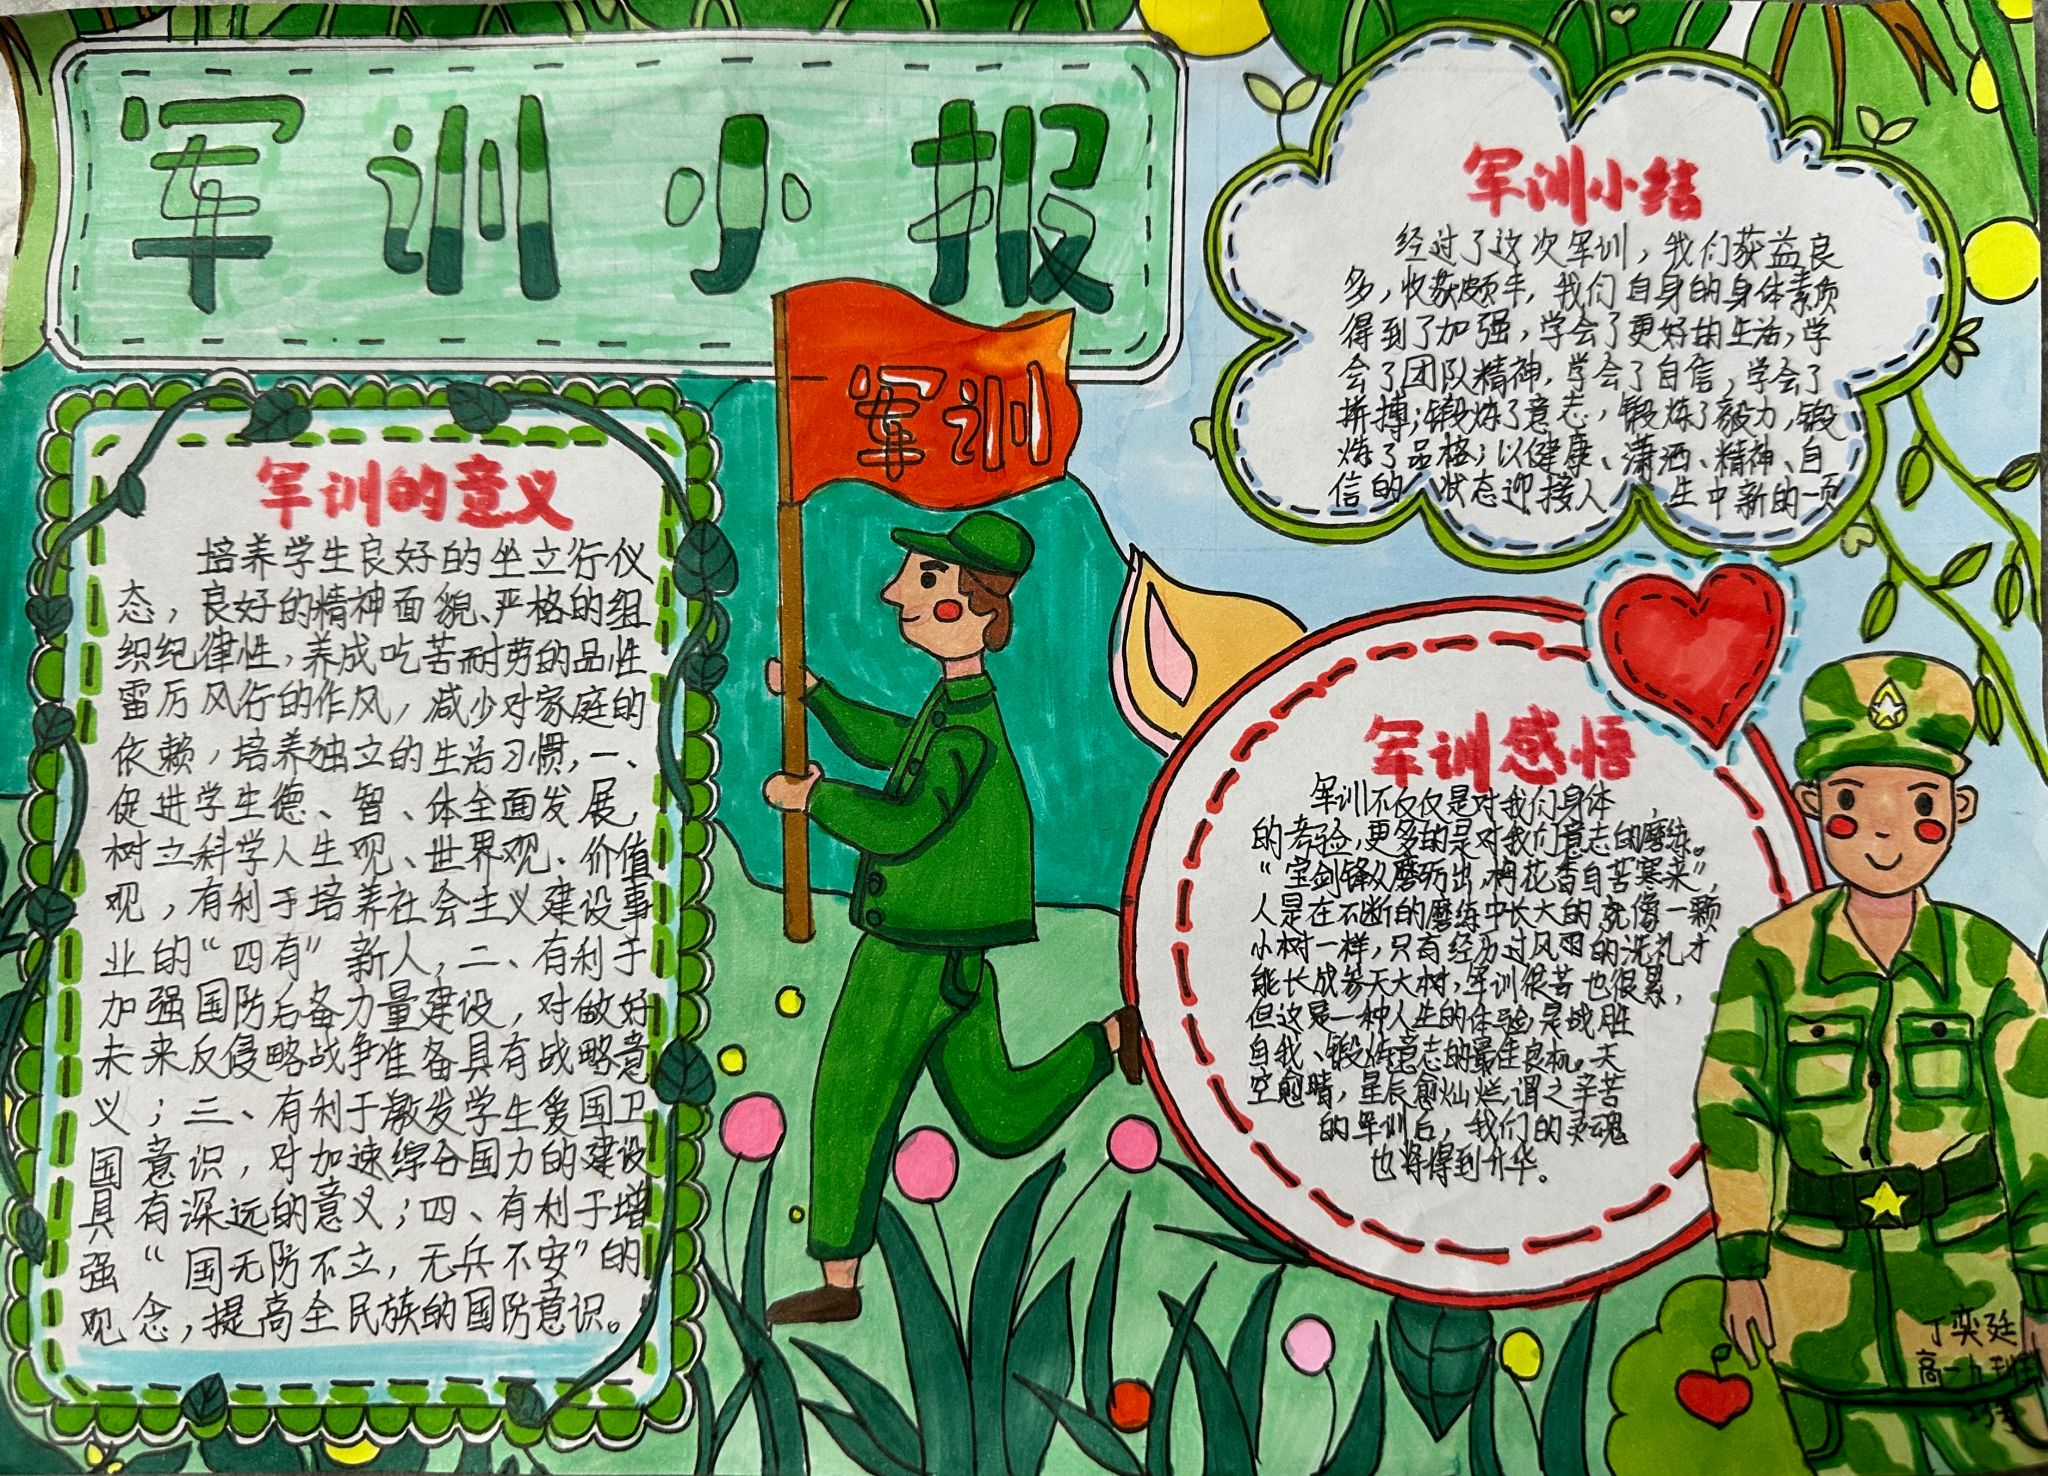 军训小报
军训
军训的意义
培养学生良好的坐立行仪
态，良好的精神面貌、严格的组
织纪律性，养成吃苦耐劳的品性
雷厉风行的作风，减少对家庭的
依赖，培养独立的生活习惯，一、
促进学生德、智、体全面发展，
树立科学人生观、世界观、价值
观，有利于培养社会主义建设事
业的“四有”新人，二、有利于
加强国防后备力量建设，对做好
未来反侵略战争准备具有战略意
义；三、有利于激发学生爱国卫
国意识，对加速综合国力的建设
具有深远的意义；四、有利于增
强“国无防不立，无兵不安”的
观念，提高全民族的国防意识。
军训小结
经过了这次军训，我们获益良
多，收获颇丰，我们自身的身体素质
得到了加强，学会了更好的生活，学
会了团队精神，学会了自信，学会了
拼搏；锻炼了意志，锻炼了毅力，锻
炼了品格；以健康、潇洒、精神、自
信的状态迎接人生中新的一页
军训感悟
军训不仅仅是对我们身体
的考验，更多的是对我们意志的磨练。
“宝剑锋从磨砺出，梅花香自苦寒来”，
人是在不断的磨练中长大的就像一颗
小树一样，只有经历过风雨的洗礼才
能长成参天大树，军训很苦也很累，
但这是一种人生的体验，是战胜
自我、锻炼意志的最佳良机。天
空愈晴，星辰愈灿烂，谓之辛苦
的军训后，我们的灵魂
也将得到升华。
丁奕廷
高一九班